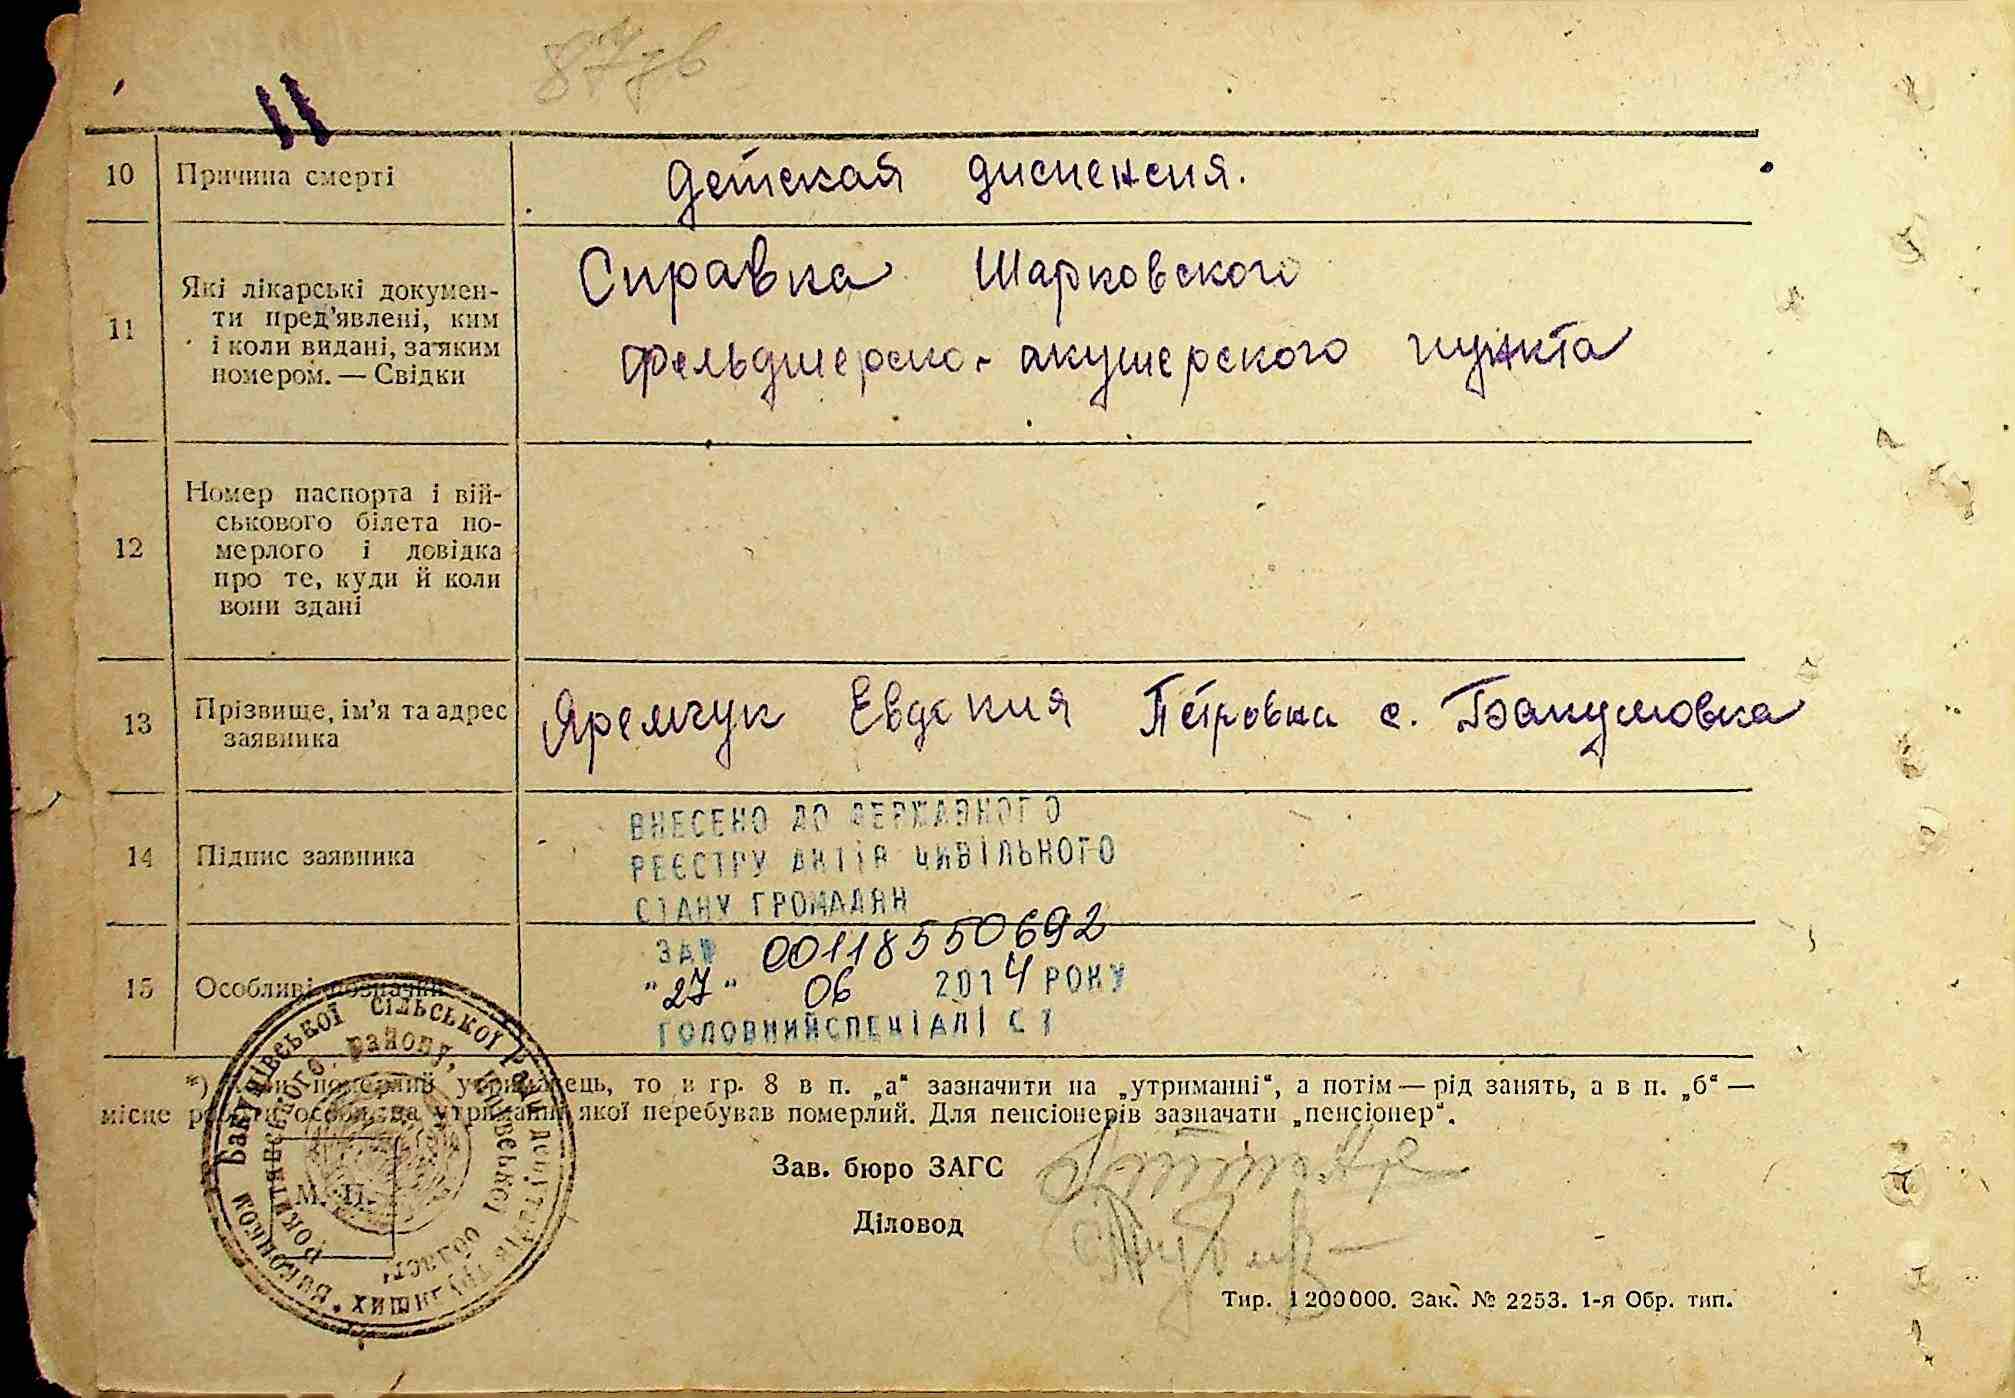 11
10 Причина смерті детская диспенсия.
11 Які лікарські докумен-
ти пред'явлені, ким
і коли видані, за яким
номером. — Свідки
Справка Шарковского
фельдшерско-акушерского пункта
12 Номер паспорта і вій-
ськового білета по-
мерлого і довідка
про те, куди й коли
вони здані
13 Прізвище, ім'я та адрес
заявника
Яремчук Евдокия Петровна с. Бакумовка
14 Підпис заявника
ВНЕСЕНО ДО ДЕРЖАВНОГО
РЕЄСТРУ АКТІВ ЦИВІЛЬНОГО
СТАНУ ГРОМАДЯН
15 Особливі позначки
ЗА № 00118550692
"27" 06 2014 РОКУ
ГОЛОВНИЙ СПЕЦІАЛІСТ
*) померлий утриманець, то в гр. 8 в п. „а“ зазначити на „утриманні“, а потім — рід занять, а в п. „б“ —
місце роботи особи, на утриманні якої перебував померлий. Для пенсіонерів зазначати „пенсіонер“.
Виконком Бакумівської сільської Ради депутатів трудящих
Рокитнянського району, Київської області
М. П.
Зав. бюро ЗАГС
Діловод
Тир. 1200000. Зак. № 2253. 1-я Обр. тип.